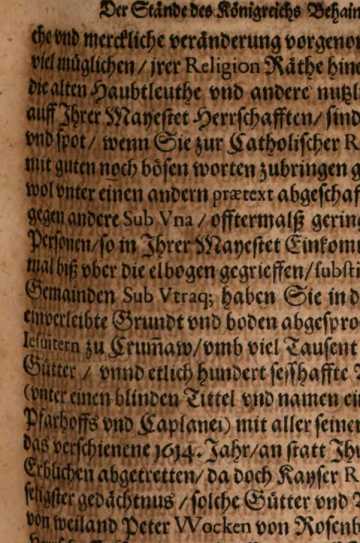 Der Stände des Königreichs Behaim
che vnd merckliche veränderung vorgenom
viel müglichen / jrer Religion Räthe hine
die alten Haubtleuthe vnd andere nutzli
auff Jhrer Mayestet Herrschafften / sind
vnd spot / wenn Sie zur Catholischer R
mit guten noch bösen worten zubringen g
wol vnter einen andern prætext abgeschaf
gegen andere Sub Vna / offtermalß gering
Personen / so in Jhrer Mayestet Einkom
mal biß vber die elbogen gegrieffen / substi
Gemainden Sub Vtraq; haben Sie in d
einverleibte Grundt vnd boden abgespro
Iesuitern zu Crum̃aw / vmb viel Tausent
Gütter / vnnd etlich hundert seßhaffte
(vnter einen blinden Tittel vnd namen ei
Pfarhoffs vnd Caplanei) mit aller seiner
das verschienene 1614. Jahr / an statt Jh
Erblichen abgetretten / da doch Kayser R
seligster gedächtnus / solche Gütter vnd
von weiland Peter VVocken von Rosenb